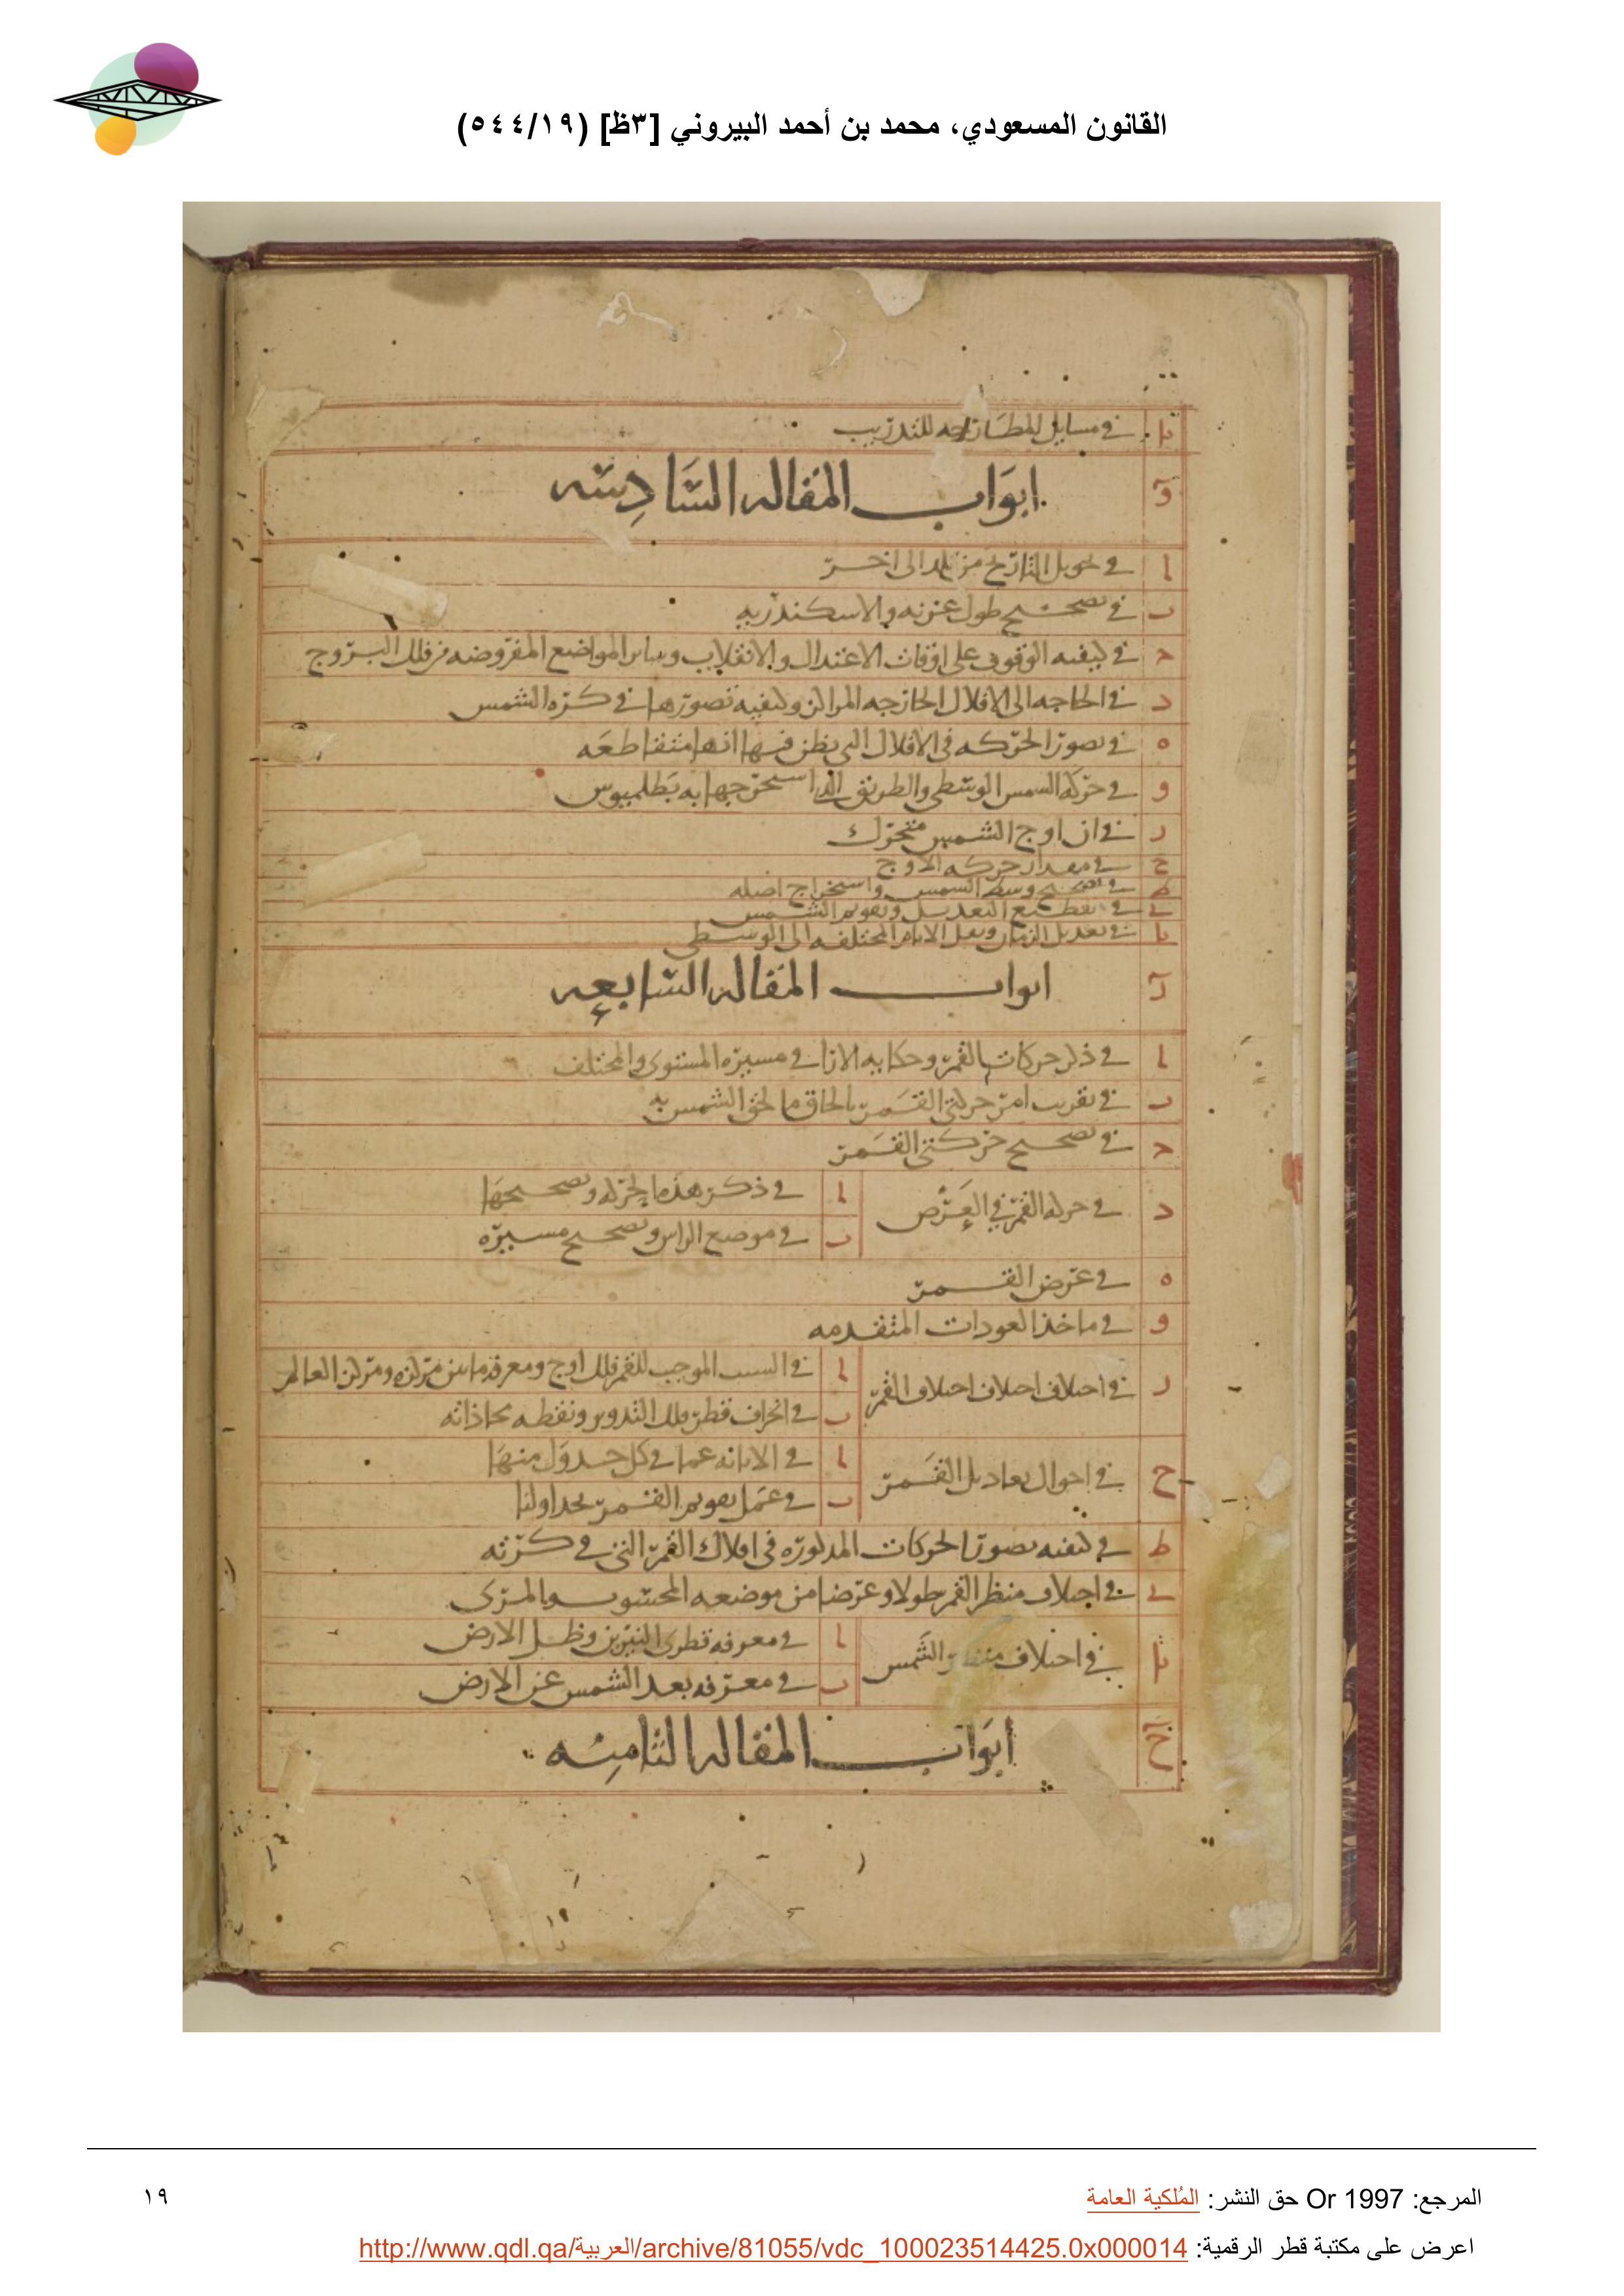 القانون المسعودي، محمد بن أحمد البيروني [٣ظ] (٥٤٤/١٩)
يا في مسايل للتدريب
و ابواب المقاله السادسه
ا في تحويل التاريخ من بلد الى اخر
ب في تصحيح طول غزنه والاسكندريه
ج في كيفيه الوقوف على اوقات الاعتدال والانقلاب وساير المواضع المفروضه من فلك البروج
د في الحاجه الى الافلاك الخارجه المراكز وكيفيه تصورها في كره الشمس
ه في تصور الحركه في الافلاك التي يظن فيها انها متقاطعه
و في حركه الشمس الوسطى والطريق الذي استخرجها به بطلميوس
ز في ان اوج الشمس متحرك
ح في مقدار حركه الاوج
ط في تصحيح وسط الشمس واستخراج اصله
ي في تقطيع التعديل وتقويم الشمس
يا في تعديل الزمان ونقل الايام المختلفه الى الوسطى
ز ابواب المقاله السابعه
ا في ذكر حركات القمر وحكايه الارا في مسيره المستوى والمختلف
ب في تقريب امر حركتي القمر بالحاق ما لحق الشمس به
ج في تصحيح حركتي القمر
د في حركه القمر في العرض
ا في ذكر هذه الحركه وتصحيحها
ب في موضع الراس وتصحيح مسيره
ه في عرض القمر
و في ماخذ العودات المتقدمه
ز في اختلاف اختلاف القمر
ا في السبب الموجب للقمر فلك اوج ومعرفه ما بين مركزه ومركز العالم
ب في انحراف قطر فلك التدوير ونقطه محاذاته
ح في احوال تعاديل القمر
ا في الابانه عما في كل جدول منها
ب في عمل تقويم القمر بجداولنا
ط في كيفيه تصور الحركات المذكوره في افلاك القمر التي في كرته
ي في اختلاف منظر القمر طولا وعرضا من موضعه المحسوب والمرى
يا في اختلاف منظر الشمس
ا في معرفه قطرى النيرين وظل الارض
ب في معرفه بعد الشمس عن الارض
ح ابواب المقاله الثامنه
المرجع: Or 1997 حق النشر: المُلكية العامة
١٩
اعرض على مكتبة قطر الرقمية: http://www.qdl.qa/العربية/archive/81055/vdc_100023514425.0x000014